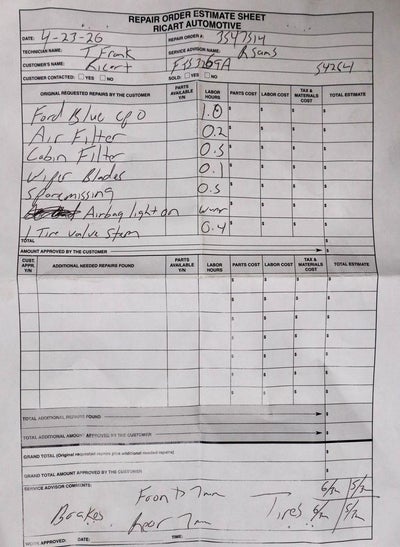 REPAIR ORDER ESTIMATE SHEET
RICART AUTOMOTIVE
DATE: 4-23-26 REPAIR ORDER #: 3547514
TECHNICIAN NAME: T. Frank SERVICE ADVISOR NAME: R Sams
CUSTOMER'S NAME: Ricart 54254
CUSTOMER CONTACTED: YES NO SOLD: YES NO
ORIGINAL REQUESTED REPAIRS BY THE CUSTOMER PARTS AVAILABLE Y/N LABOR HOURS PARTS COST LABOR COST TAX & MATERIALS COST TOTAL ESTIMATE
Ford Blue CPO 1.0 $ $ $ $
Air Filter 0.2 $ $ $ $
Cabin Filter 0.3 $ $ $ $
Wiper Blades 0.1 $ $ $ $
Spare missing 0.3 $ $ $ $
Airbag light on $ $ $ $
1 Tire valve stem 0.4 $ $ $ $
TOTAL $
AMOUNT APPROVED BY THE CUSTOMER $
CUST. APPR. Y/N ADDITIONAL NEEDED REPAIRS FOUND PARTS AVAILABLE Y/N LABOR HOURS PARTS COST LABOR COST TAX & MATERIALS COST TOTAL ESTIMATE
$ $ $ $
$ $ $ $
$ $ $ $
$ $ $ $
$ $ $ $
$ $ $ $
$ $ $ $
TOTAL ADDITIONAL REPAIRS FOUND $
TOTAL ADDITIONAL AMOUNT APPROVED BY THE CUSTOMER $
GRAND TOTAL (Original requested repairs plus additional needed repairs) $
GRAND TOTAL AMOUNT APPROVED BY THE CUSTOMER $
SERVICE ADVISOR COMMENTS:
Front 7mm 6/32 5/32
Brakes Rear 7mm Tires 6/32 5/32
WORK APPROVED: DATE: TIME: